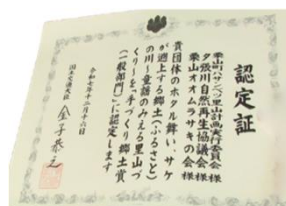 認定証
栗山町ハサンベツ里山計画実行委員会 様
夕張川自然再生協議会 様
栗山オオムラサキの会 様
貴団体のホタル舞い、サケ
が遡上する郷土(ふるさと)
の川~童謡のみえる里山づ
くり~を「手づくり郷土賞
(一般部門)」に認定します
令和七年十二月十六日
国土交通大臣 金子恭之